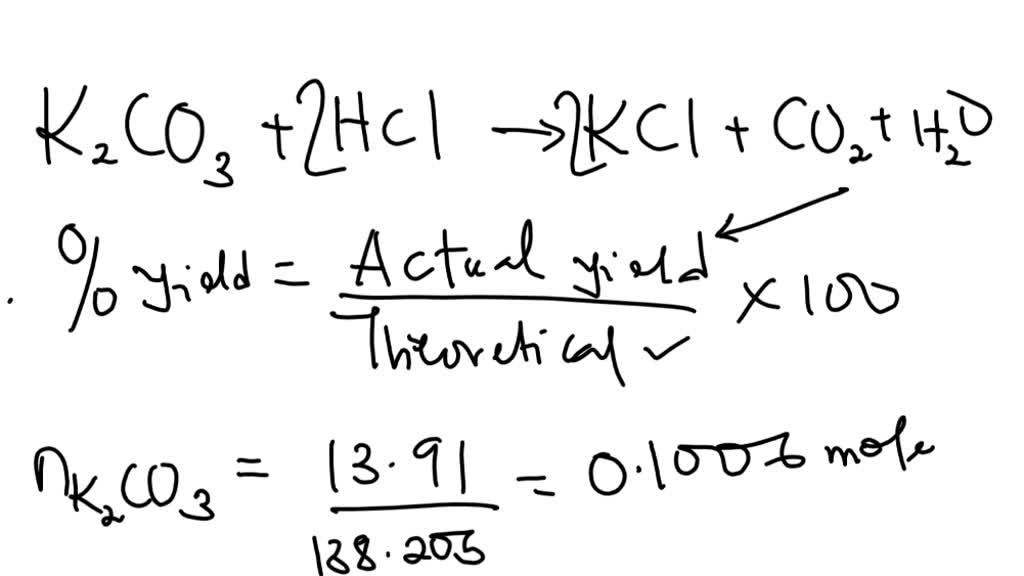 K₂CO₃ + 2HCl → 2KCl + CO₂ + H₂O
% yield = Actual yield / Theoretical ✓ × 100
nK₂CO₃ = 13.91 / 138.205 = 0.1006 mole